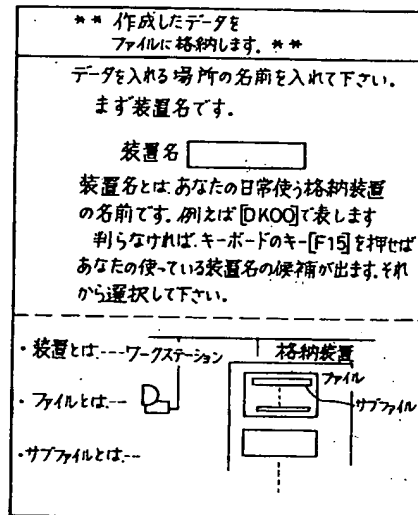 ** 作成したデータを
ファイルに格納します。**
データを入れる場所の名前を入れて下さい。
まず装置名です。
装置名
装置名とは、あなたの日常使う格納装置
の名前です。例えば[DK00]で表します
判らなければ、キーボードのキー[F15]を押せば
あなたの使っている装置名の候補が出ます。それ
から選択して下さい。
・装置とは----ワークステーション
格納装置
ファイル
・ファイルとは---
サブファイル
・サブファイルとは---